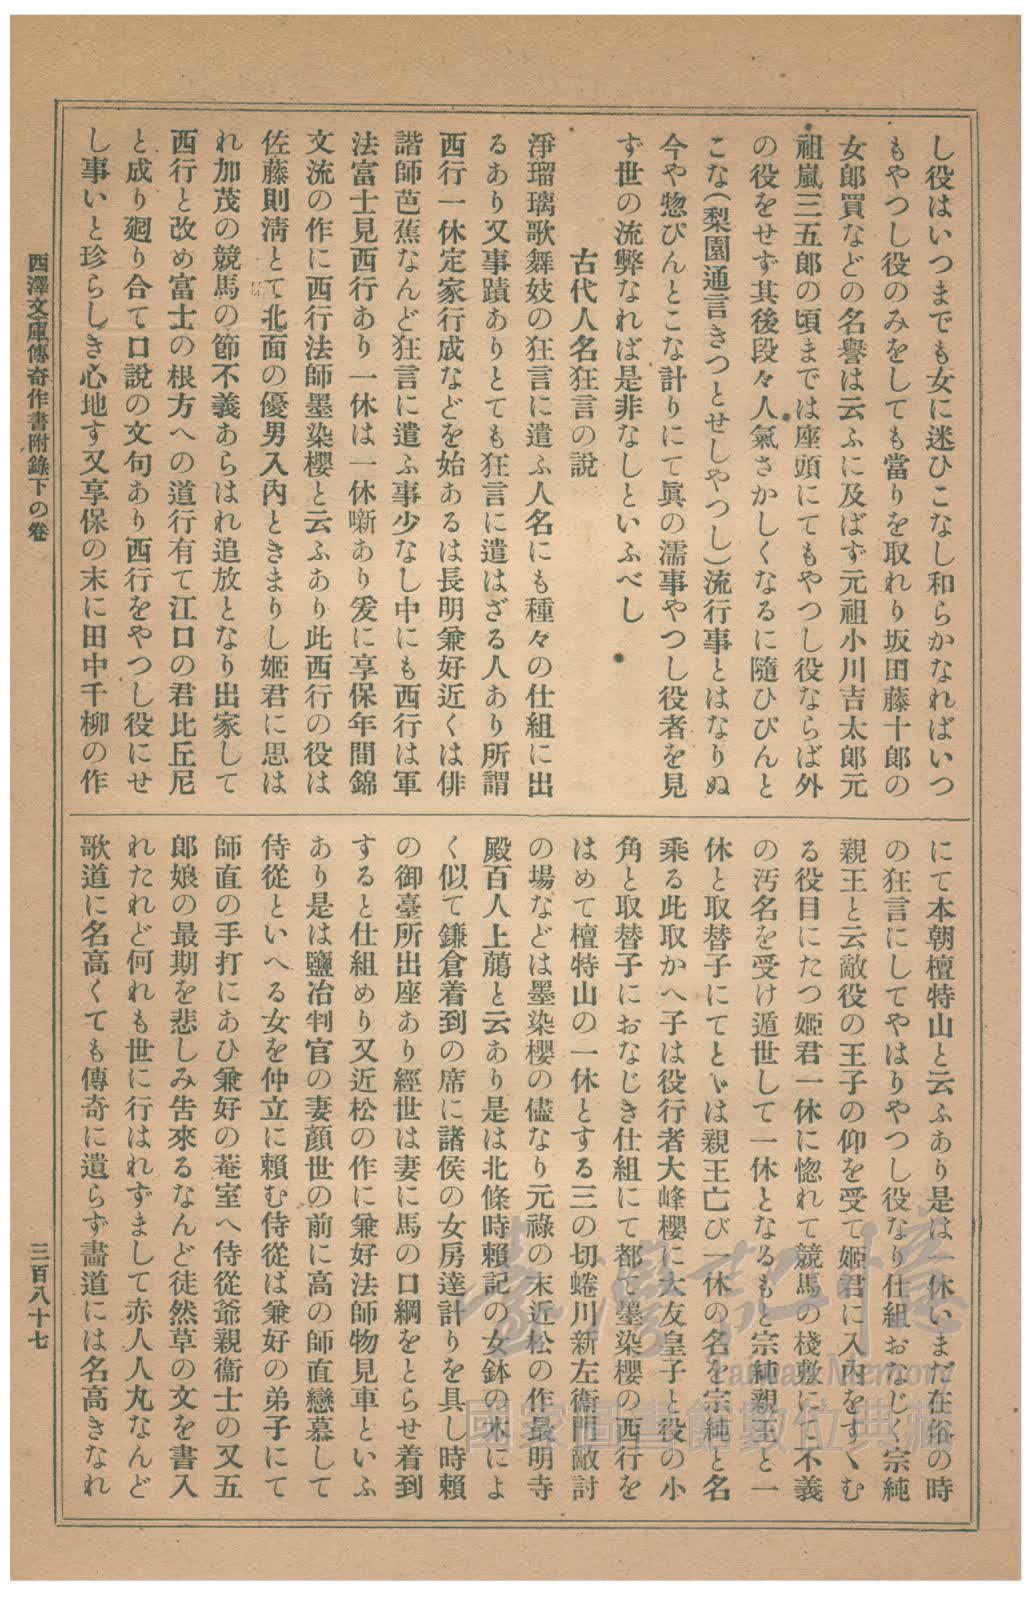 し役はいつまでも女に迷ひこなし和らかなればいつ
もやつし役のみをしても當りを取れり坂田藤十郎の
女郎買などの名譽は云ふに及ばず元祖小川吉太郎元
祖嵐三五郎の頃までは座頭にてもやつし役ならば外
の役をせず其後段々人氣さかしくなるに隨ひぴんと
こな(梨園通言きつとせしやつし)流行事とはなりぬ
今や惣ぴんとこな計りにて眞の濡事やつし役者を見
ず世の流弊なれば是非なしといふべし
古代人名狂言の說
淨瑠璃歌舞妓の狂言に遣ふ人名にも種々の仕組に出
るあり又事蹟ありとても狂言に遣はざる人あり所謂
西行一休定家行成などを始あるは長明兼好近くは俳
諧師芭蕉なんど狂言に遣ふ事少なし中にも西行は軍
法富士見西行あり一休は一休噺あり爰に享保年間錦
文流の作に西行法師墨染櫻と云ふあり此西行の役は
佐藤則淸とて北面の優男入內ときまりし姬君に思は
れ加茂の競馬の節不義あらはれ追放となり出家して
西行と改め富士の根方への道行有て江口の君比丘尼
と成り廻り合て口說の文句あり西行をやつし役にせ
し事いと珍らしき心地す又享保の末に田中千柳の作
にて本朝檀特山と云ふあり是は一休いまだ在俗の時
の狂言にしてやはりやつし役なり仕組おなじく宗純
親王と云敵役の王子の仰を受て姬君に入內をすゝむ
る役目にたつ姬君一休に惚れて競馬の棧敷にて不義
の汚名を受け遁世して一休となるもと宗純親王と一
休と取替子にてとゞは親王亡び一休の名を宗純と名
乘る此取かへ子は役行者大峰櫻に大友皇子と役の小
角と取替子におなじき仕組にて都て墨染櫻の西行を
はめて檀特山の一休とする三の切蜷川新左衞門敵討
の場などは墨染櫻の儘なり元祿の末近松の作最明寺
殿百人上﨟と云あり是は北條時賴記の女鉢の木によ
く似て鎌倉着到の席に諸侯の女房達計りを具し時賴
の御臺所出座あり經世は妻に馬の口綱をとらせ着到
すると仕組めり又近松の作に兼好法師物見車といふ
あり是は鹽冶判官の妻顏世の前に高の師直戀慕して
侍從といへる女を仲立に賴む侍從は兼好の弟子にて
師直の手打にあひ兼好の菴室へ侍從爺親衞士の又五
郎娘の最期を悲しみ吿來るなんど徒然草の文を書入
れたれど何れも世に行はれずまして赤人人丸なんど
歌道に名高くても傳奇に遺らず畵道には名高きなれ
西澤文庫傳奇作書附錄下の卷
三百八十七
臺灣記憶
Taiwan Memory
國家圖書館數位典藏